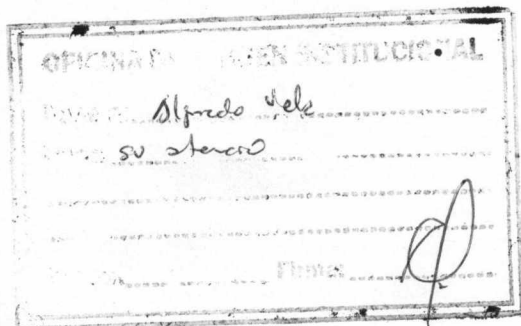 OFICINA DE IMAGEN INSTITUCIONAL
Alfredo Vela
su atencio
Firma: